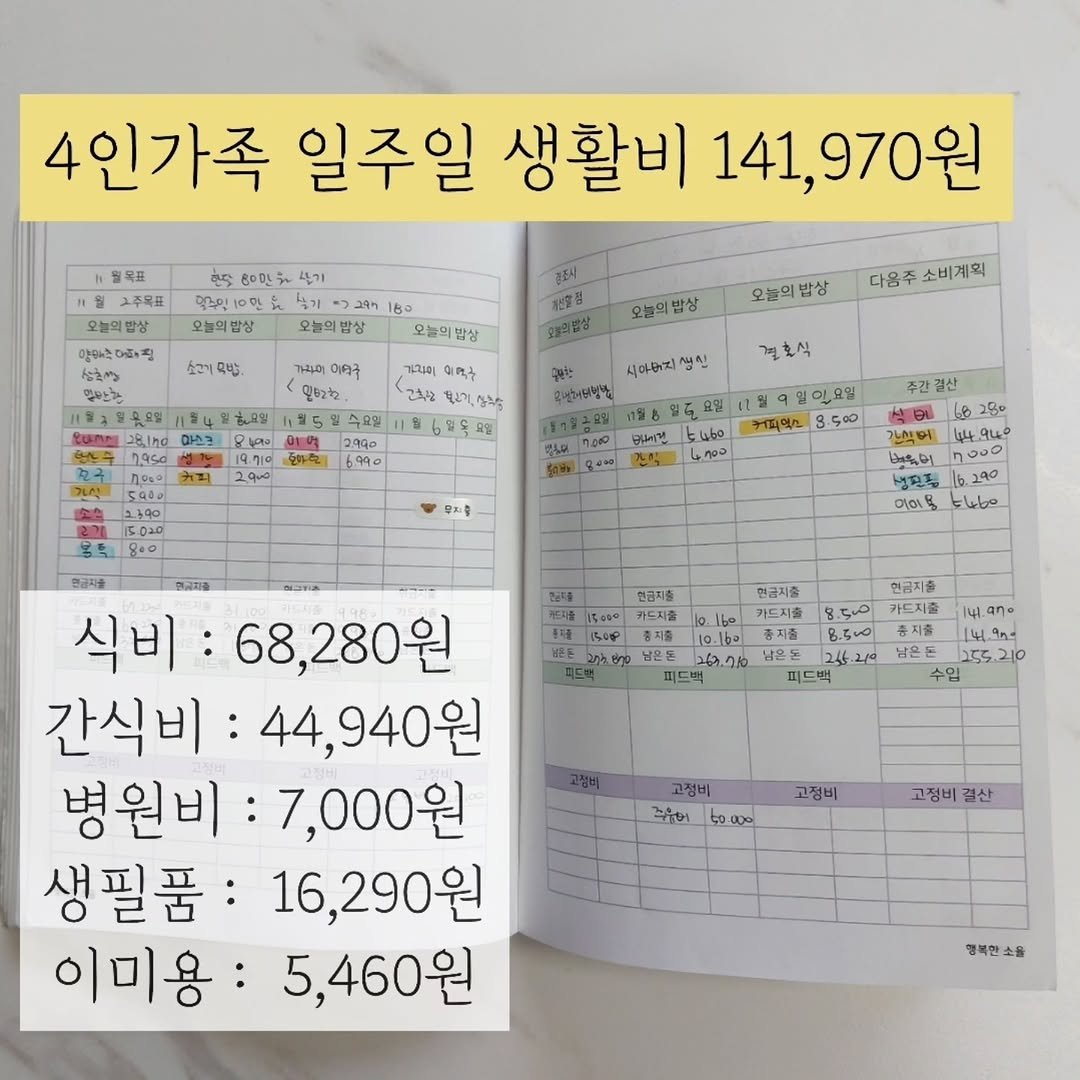 4인가족 일주일 생활비 141,970원
11월목표 한달 80만원 살기
11월 2주목표 일주일 10만원 살기 => 297.180
오늘의 밥상 오늘의 밥상 오늘의 밥상 오늘의 밥상
상추쌈 소고기 묵밥. 가자미 미역국 가자미 미역국
11월 3일 월요일 11월 4일 화요일 11월 5일 수요일 11월 6일 목요일
28,170 마스크 8.490 미역 2.990
탄산수 7,950 생강 19.710 6.990
7,000 커피 2900
간식 5,900
소스 2.390
고기 15.020
봉투 800
무지출
현금지출 현금지출 현금지출 현금지출
카드지출 카드지출 31,100 카드지출 9.980 카드지출
경조사
개선할 점
오늘의 밥상 오늘의 밥상 오늘의 밥상 다음주 소비계획
시아버지 생신 결혼식
11월 7일 금요일 11월 8일 토요일 11월 9일 일요일 주간 결산
병원비 7.000 5.460 커피믹스 8.500 식비 68.280
8.000 간식 4.700 간식비 44.940
병원비 7.000
생필품 16.290
이미용 5.460
현금지출 현금지출 현금지출 현금지출
카드지출 15.000 카드지출 10.160 카드지출 8.500 카드지출 141.970
총지출 15.000 총지출 10.160 총지출 8.500 총지출 141.970
남은돈 남은돈 남은돈 남은돈 255.210
피드백 피드백 피드백 수입
고정비 고정비 고정비 고정비 결산
주유비 50.000
고정비 고정비 고정비
행복한 소율
식비 : 68,280원
간식비 : 44,940원
병원비 : 7,000원
생필품 : 16,290원
이미용 : 5,460원